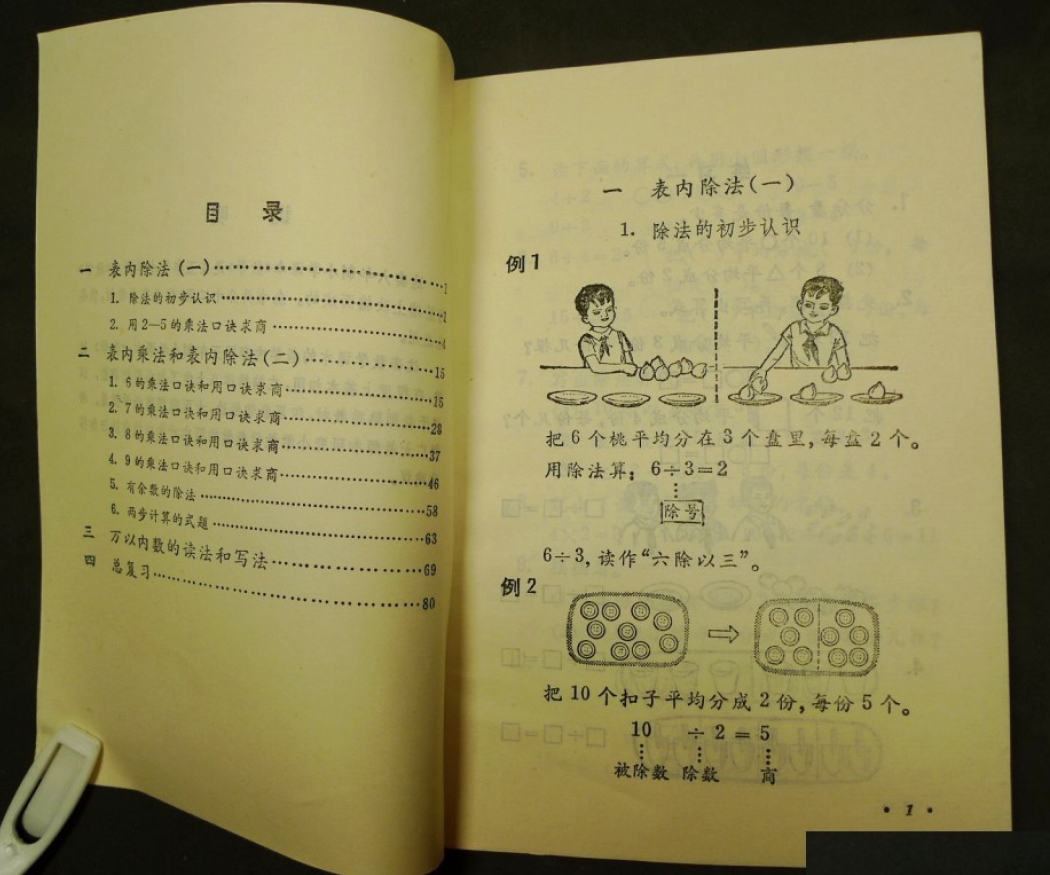 目 录
一 表内除法(一)……………………1
1. 除法的初步认识……………………1
2. 用2—5的乘法口诀求商……………………4
二 表内乘法和表内除法(二)……………………15
1. 6的乘法口诀和用口诀求商……………………15
2. 7的乘法口诀和用口诀求商……………………28
3. 8的乘法口诀和用口诀求商……………………37
4. 9的乘法口诀和用口诀求商……………………46
5. 有余数的除法……………………58
6. 两步计算的式题……………………63
三 万以内数的读法和写法……………………69
四 总复习……………………80
一 表内除法(一)
1. 除法的初步认识
例1
把6个桃平均分在3个盘里,每盘2个。
用除法算: 6÷3=2
除号
6÷3,读作“六除以三”。
例2
把10个扣子平均分成2份,每份5个。
10 ÷ 2 = 5
被除数 除数 商
·1·